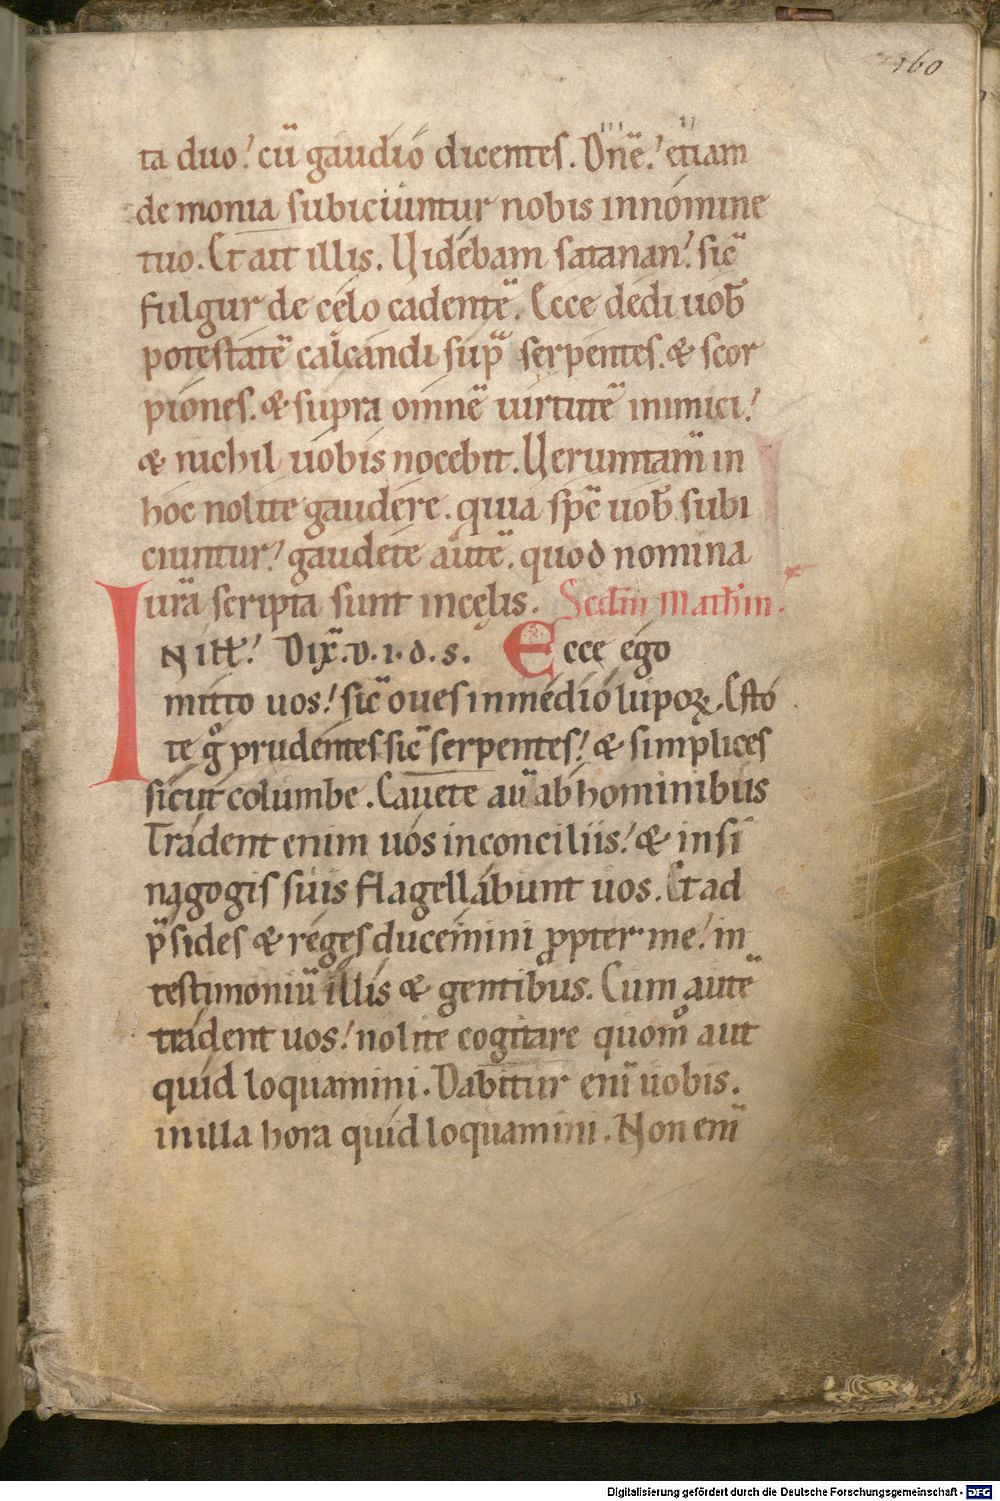 160
ta duo! cū gaudio dicentes. Dn̄e! etiam
demonia subiciuntur nobis innomine
tuo. Et ait illis. Videbam satanan! sic̄
fulgur de celo cadentē. Ecce dedi uob̄
potestatē calcandi sup̄ serpentes. & scor
piones. & supra omnē uirtutē inimici!
& nichil uobis nocebit. Veruntam̄ in
hoc nolite gaudere. quia sp̄c uob̄ subi
ciuntur! gaudete autē. quod nomina
ur̄a scripta sunt incelis. Scdm̄ Mathm̄.
IN ill̄! Dix̄. D. i. d. s. Ecce ego
mitto uos! sic̄ oues inmedio lupoꝝ. Esto
te g̊ prudentes sic̄ serpentes! & simplices
sicut columbe. Cauete au̅ ab hominibus
Tradent enim uos inconciliis! & insi
nagogis suis flagellabunt uos. Et ad
p̄sides & reges ducemini ꝓpter me! in
testimoniū illis & gentibus. Cum autē
tradent uos! nolite cogitare quom̊ aut
quid loquamini. Dabitur enī uobis.
inilla hora quid loquamini. Non enī
Digitalisierung gefördert durch die Deutsche Forschungsgemeinschaft - DFG